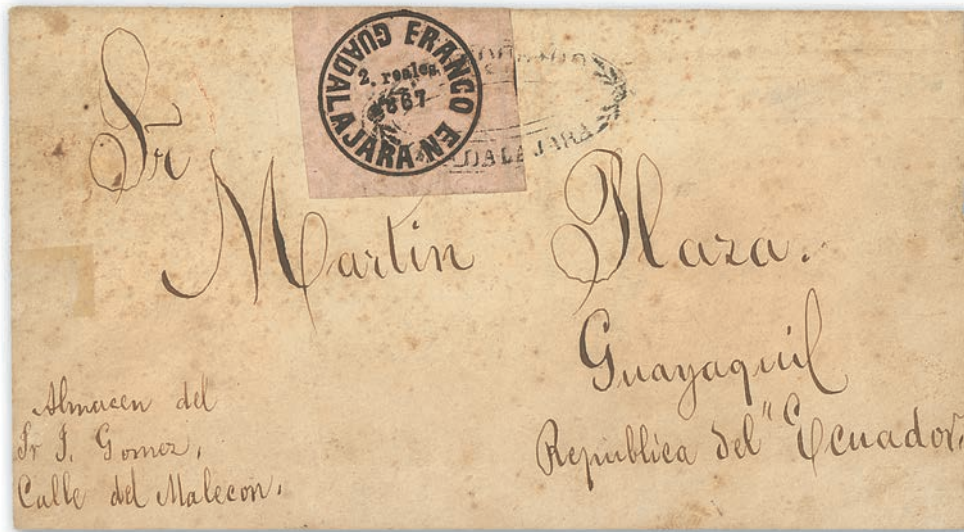 FRANCO EN GUADALAJARA
2. reales
1867
GUADALAJARA
Sr
Martin Plaza.
Guayaquil
Republica del "Ecuador,
Almacen del
Sr J. Gomez,
Calle del Malecon,